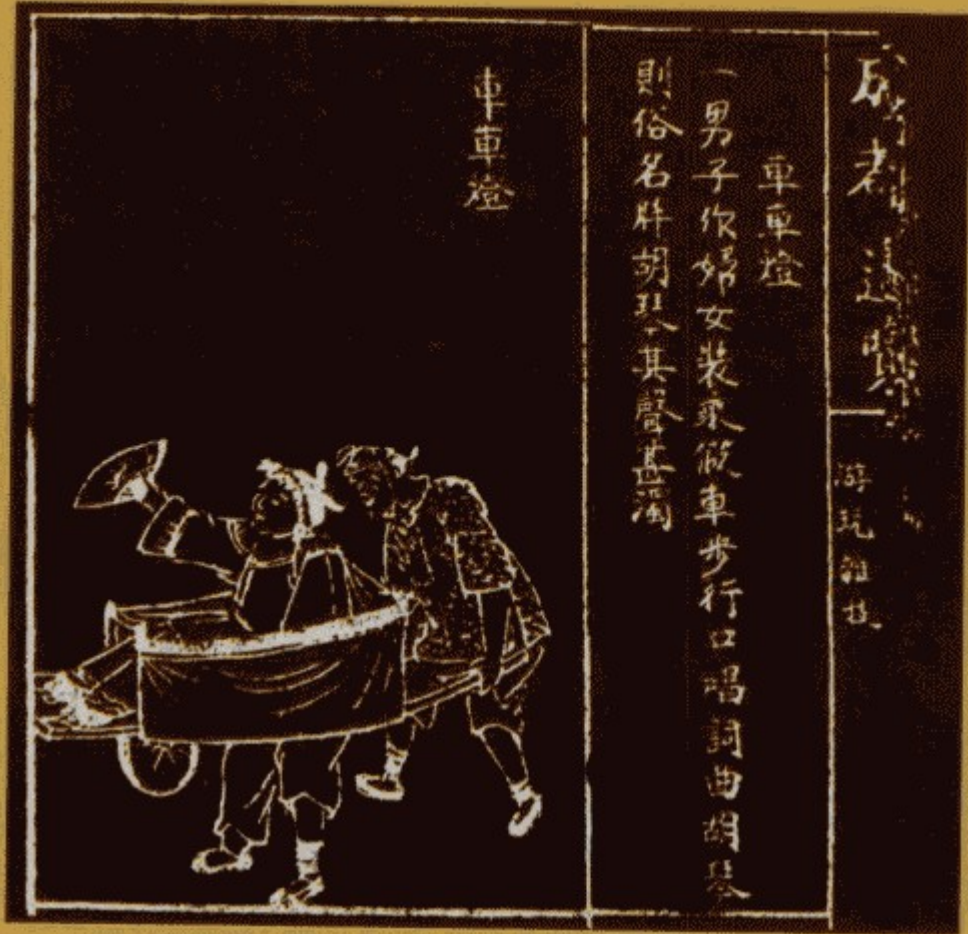 成都通覽
游玩雜技
車車燈
一男子作婦女裝乘假車步行口唱詞曲胡琴
則俗名牂胡琴其聲甚濁
車車燈